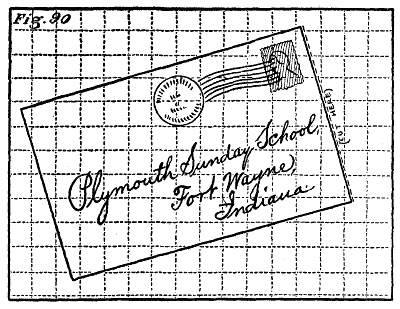 Fig. 90
Plymouth Sunday School,
Fort Wayne,
Indiana
(CUT HERE)